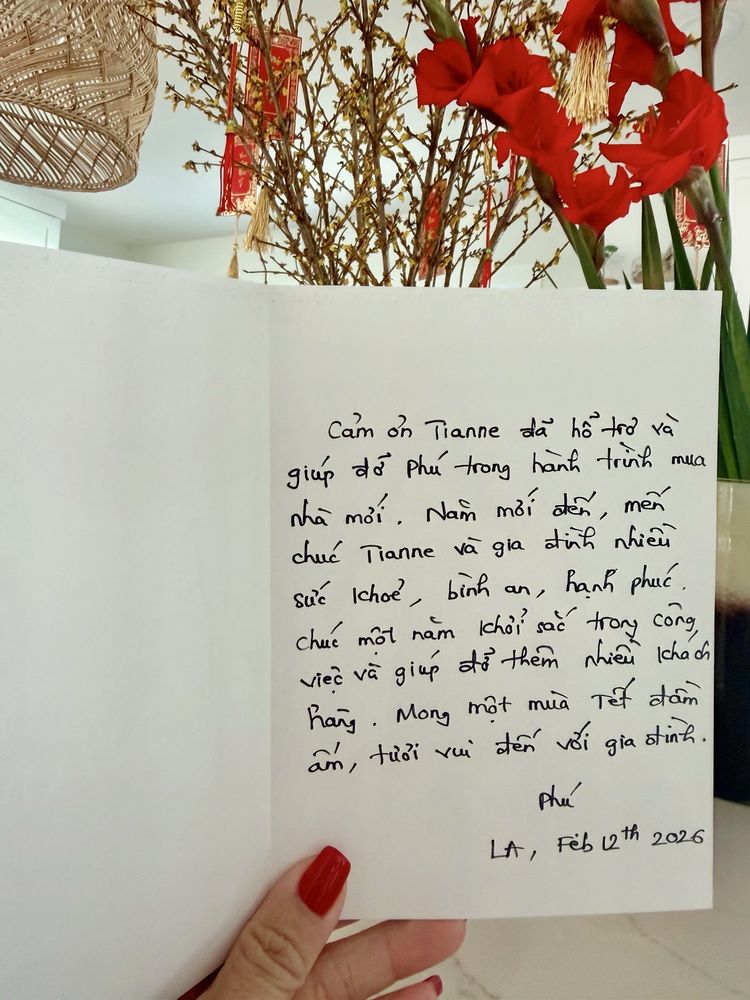 Cảm ơn Tianne đã hỗ trợ và
giúp đỡ Phú trong hành trình mua
nhà mới. Năm mới đến, mến
chúc Tianne và gia đình nhiều
sức khoẻ, bình an, hạnh phúc.
Chúc một năm khởi sắc trong công
việc và giúp đỡ thêm nhiều khách
hàng. Mong một mùa Tết đầm
ấm, tươi vui đến với gia đình.
Phú
LA, Feb 12th 2026